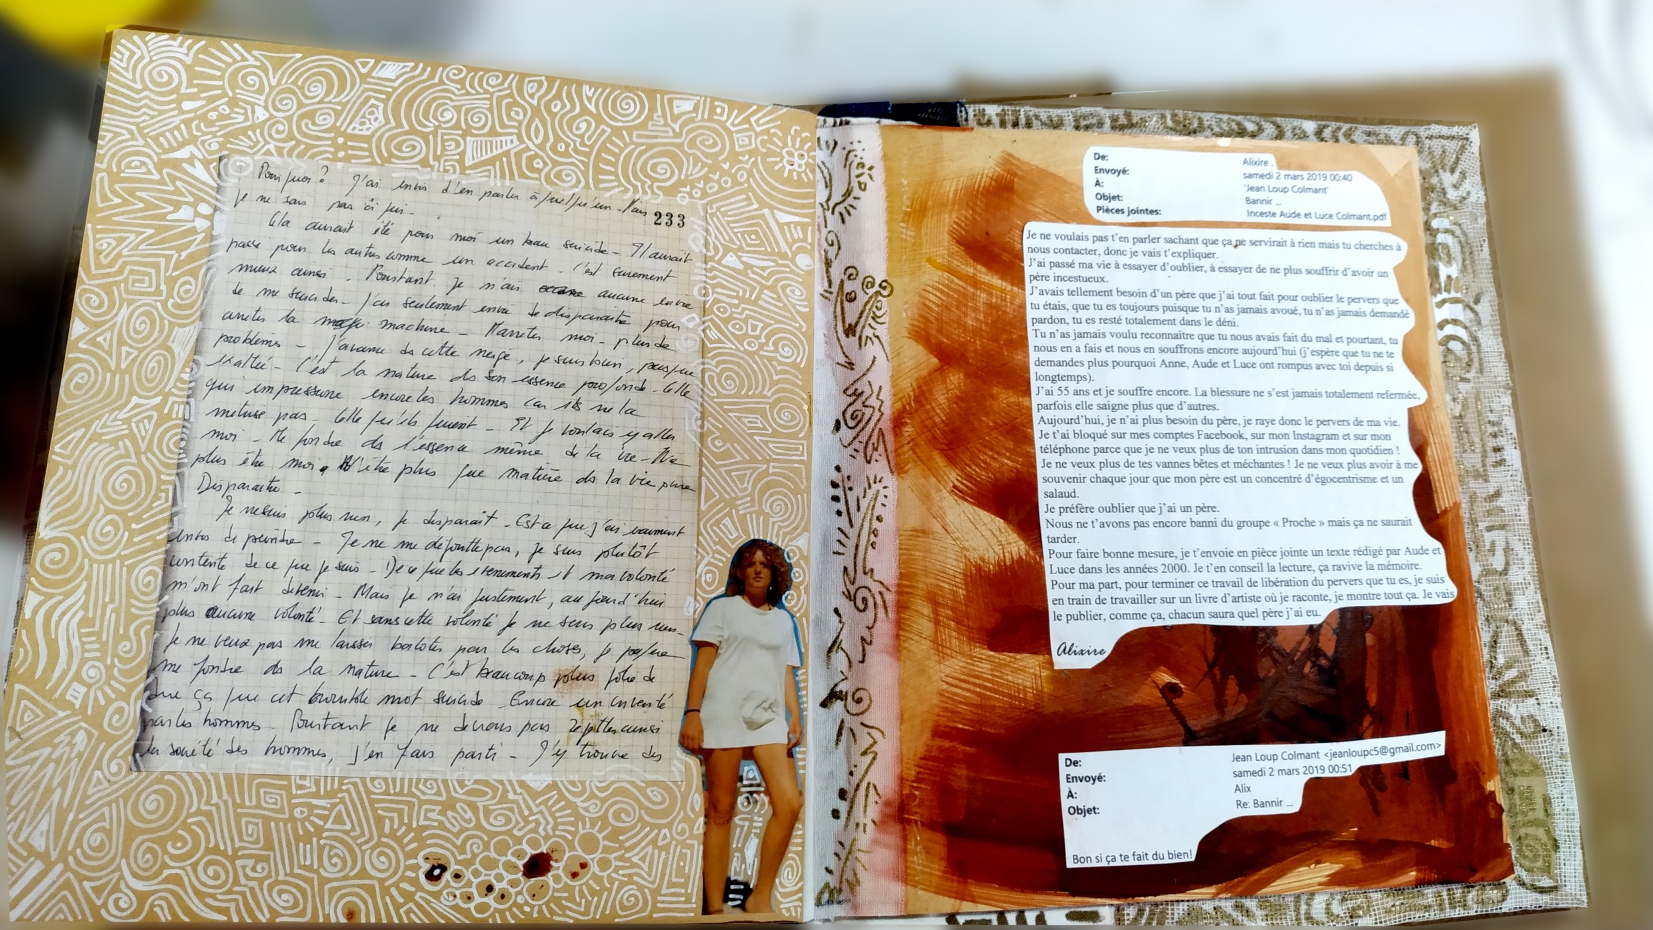 Pourquoi ? J'ai envie d'en parler à quelqu'un - Mais
je ne sais pas à qui -
233
Cela aurait été pour moi un beau suicide - Il aurait
passé pour les autres comme un accident - C'est surement
mieux ainsi - Pourtant je n'ais aucune envie
de me suicider - J'ai seulement envie de disparaitre pour
arrêter la machine - M'arrêter moi - plus de
problèmes - J'avance ds cette neige, je suis bien, presque
exaltée - C'est la nature ds son essence profonde - Celle
qui impressionne encore les hommes car ils ne la
maitrise pas - Celle qu'ils fuient - Et je voulais y aller
moi - Me fondre ds l'essence même de la vie - Ne
plus être moi, N'être plus que matière ds la vie pure
Disparaitre -
Je ne suis plus rien, je disparaît - Est ce que j'ai vraiment
envie de peindre - Je ne me dégoutte pas, je suis plutôt
contente de ce que je suis - De ce que les évènements et ma volonté
m'ont fait devenir - Mais je n'ai justement, aujourd'hui
plus aucune volonté - Et sans cette volonté je ne suis plus rien -
Je ne veux pas me laisser balotée par les choses, je préfère
me fondre ds la nature - C'est beaucoup plus folie de
dire ça que cet horrible mot suicide - Encore un inventé
par les hommes - Pourtant je ne devrais pas rejetter ainsi
la société des hommes, j'en fais parti - J'y trouve des
De: Alixire
Envoyé: samedi 2 mars 2019 00:40
À: 'Jean Loup Colmant'
Objet: Bannir ...
Pièces jointes: Inceste Aude et Luce Colmant.pdf
Je ne voulais pas t'en parler sachant que ça ne servirait à rien mais tu cherches à
nous contacter, donc je vais t'expliquer.
J'ai passé ma vie à essayer d'oublier, à essayer de ne plus souffrir d'avoir un
père incestueux.
J'avais tellement besoin d'un père que j'ai tout fait pour oublier le pervers que
tu étais, que tu es toujours puisque tu n'as jamais avoué, tu n'as jamais demandé
pardon, tu es resté totalement dans le déni.
Tu n'as jamais voulu reconnaitre que tu nous avais fait du mal et pourtant, tu
nous en a fais et nous en souffrons encore aujourd'hui (j'espère que tu ne te
demandes plus pourquoi Anne, Aude et Luce ont rompus avec toi depuis si
longtemps).
J'ai 55 ans et je souffre encore. La blessure ne s'est jamais totalement refermée,
parfois elle saigne plus que d'autres.
Aujourd'hui, je n'ai plus besoin du père, je raye donc le pervers de ma vie.
Je t'ai bloqué sur mes comptes Facebook, sur mon Instagram et sur mon
téléphone parce que je ne veux plus de ton intrusion dans mon quotidien !
Je ne veux plus de tes vannes bêtes et méchantes ! Je ne veux plus avoir à me
souvenir chaque jour que mon père est un concentré d'égocentrisme et un
salaud.
Je préfère oublier que j'ai un père.
Nous ne t'avons pas encore banni du groupe « Proche » mais ça ne saurait
tarder.
Pour faire bonne mesure, je t'envoie en pièce jointe un texte rédigé par Aude et
Luce dans les années 2000. Je t'en conseil la lecture, ça ravive la mémoire.
Pour ma part, pour terminer ce travail de libération du pervers que tu es, je suis
en train de travailler sur un livre d'artiste où je raconte, je montre tout ça. Je vais
le publier, comme ça, chacun saura quel père j'ai eu.
Alixire
De: Jean Loup Colmant <jeanloupc5@gmail.com>
Envoyé: samedi 2 mars 2019 00:51
À: Alix
Objet: Re: Bannir ...
Bon si ça te fait du bien!